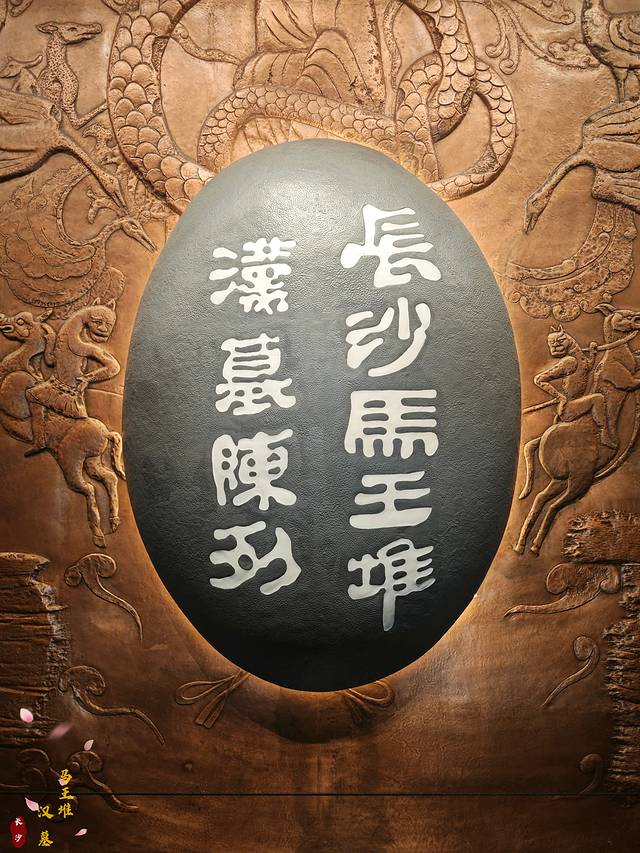 長沙馬王堆
漢墓陳列
马王堆
汉墓
长沙